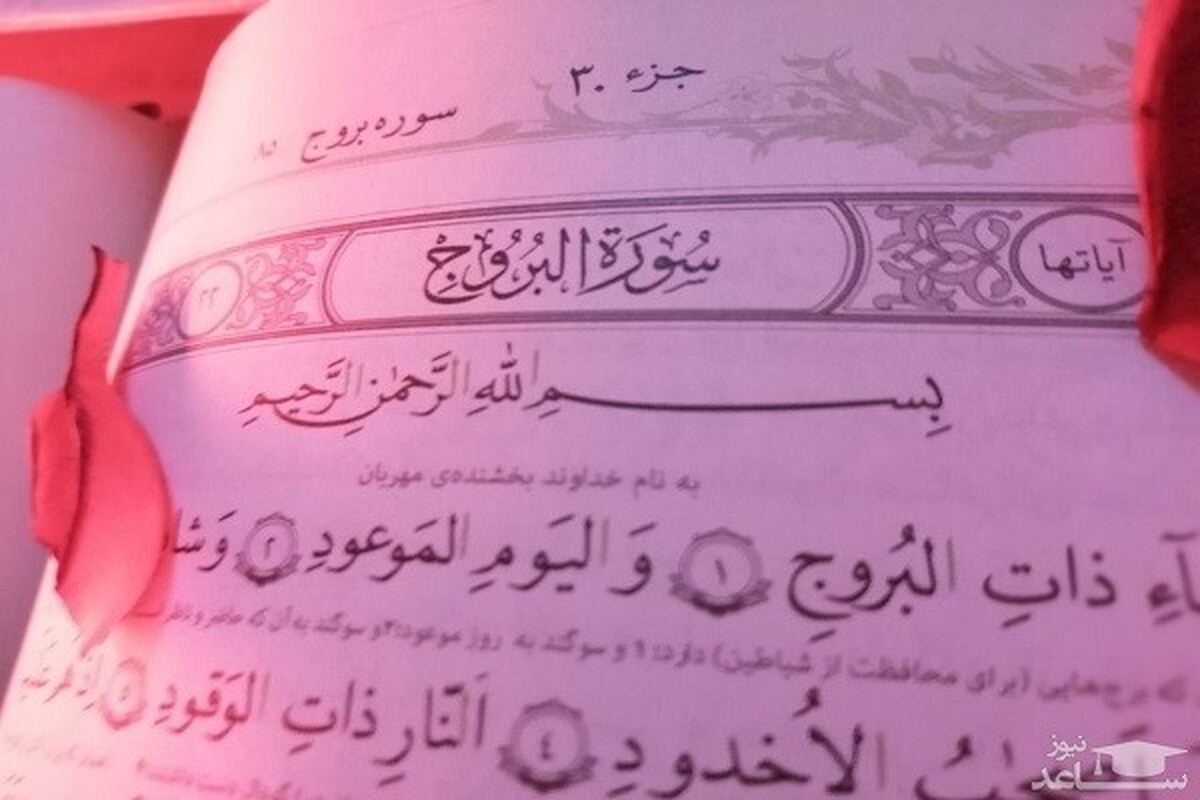 جزء ۳۰
سوره بروج ۸۵
آیاتها
سُورَةُ البُرُوجِ
۲۲
بِسمِ اللهِ الرَّحمٰنِ الرَّحیمِ
به نام خداوند بخشنده‌ی مهربان
ذاتِ البُروجِ ۱ وَ الیَومِ المَوعودِ ۲
که برج‌هایی (برای محافظت از شیاطین) دارد؛ ۱ و سوگند به روز موعود؛ ۲ و سوگند به آن که حاضر و ناظر
الاُخدودِ ٤ اَلنّارِ ذاتِ الوَقودِ ٥
نیوز
ساعد